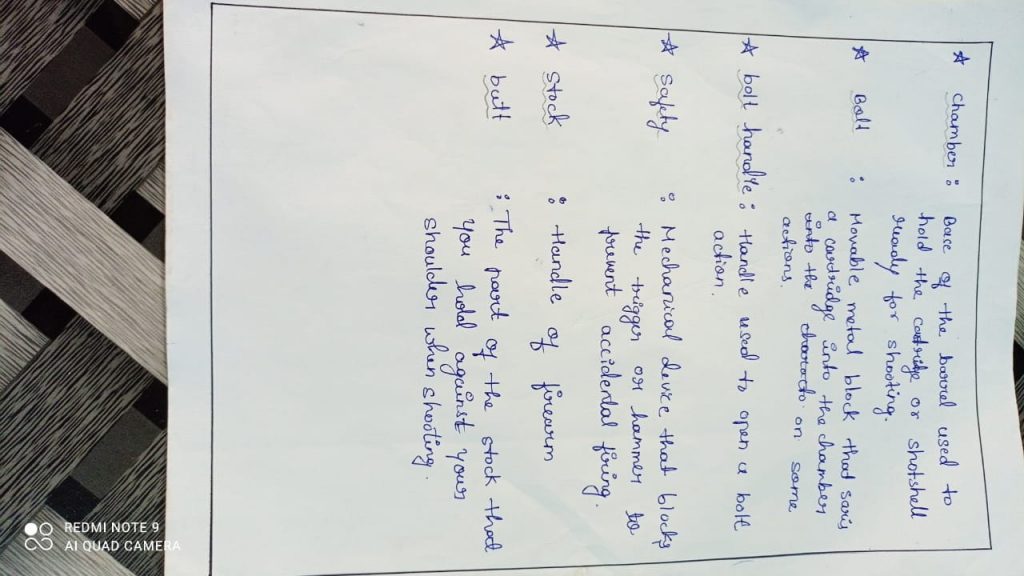 ☆ chamber : Base of the barrel used to
hold the catridge or shotshell
ready for shooting.
☆ Bolt : Movable metal block that
a cartridge into the chamber
into the on some
actions.
☆ bolt handle : Handle used to open a bolt
action.
☆ Safety : Mechanical device that blocks
the trigger or hammer to
prevent accidental firing.
☆ Stock : Handle of firearm
☆ butt : The part of the stock that
you hold against your
shoulder when shooting.
REDMI NOTE 9
AI QUAD CAMERA